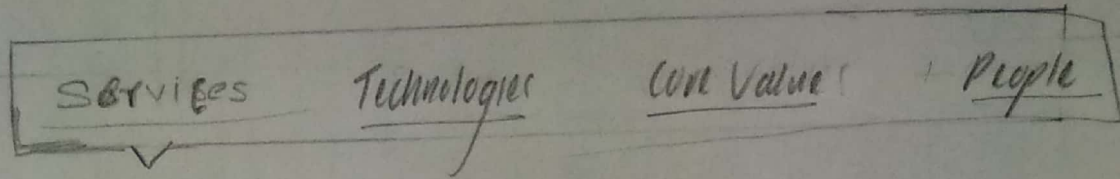 Services Technologies Core Values People